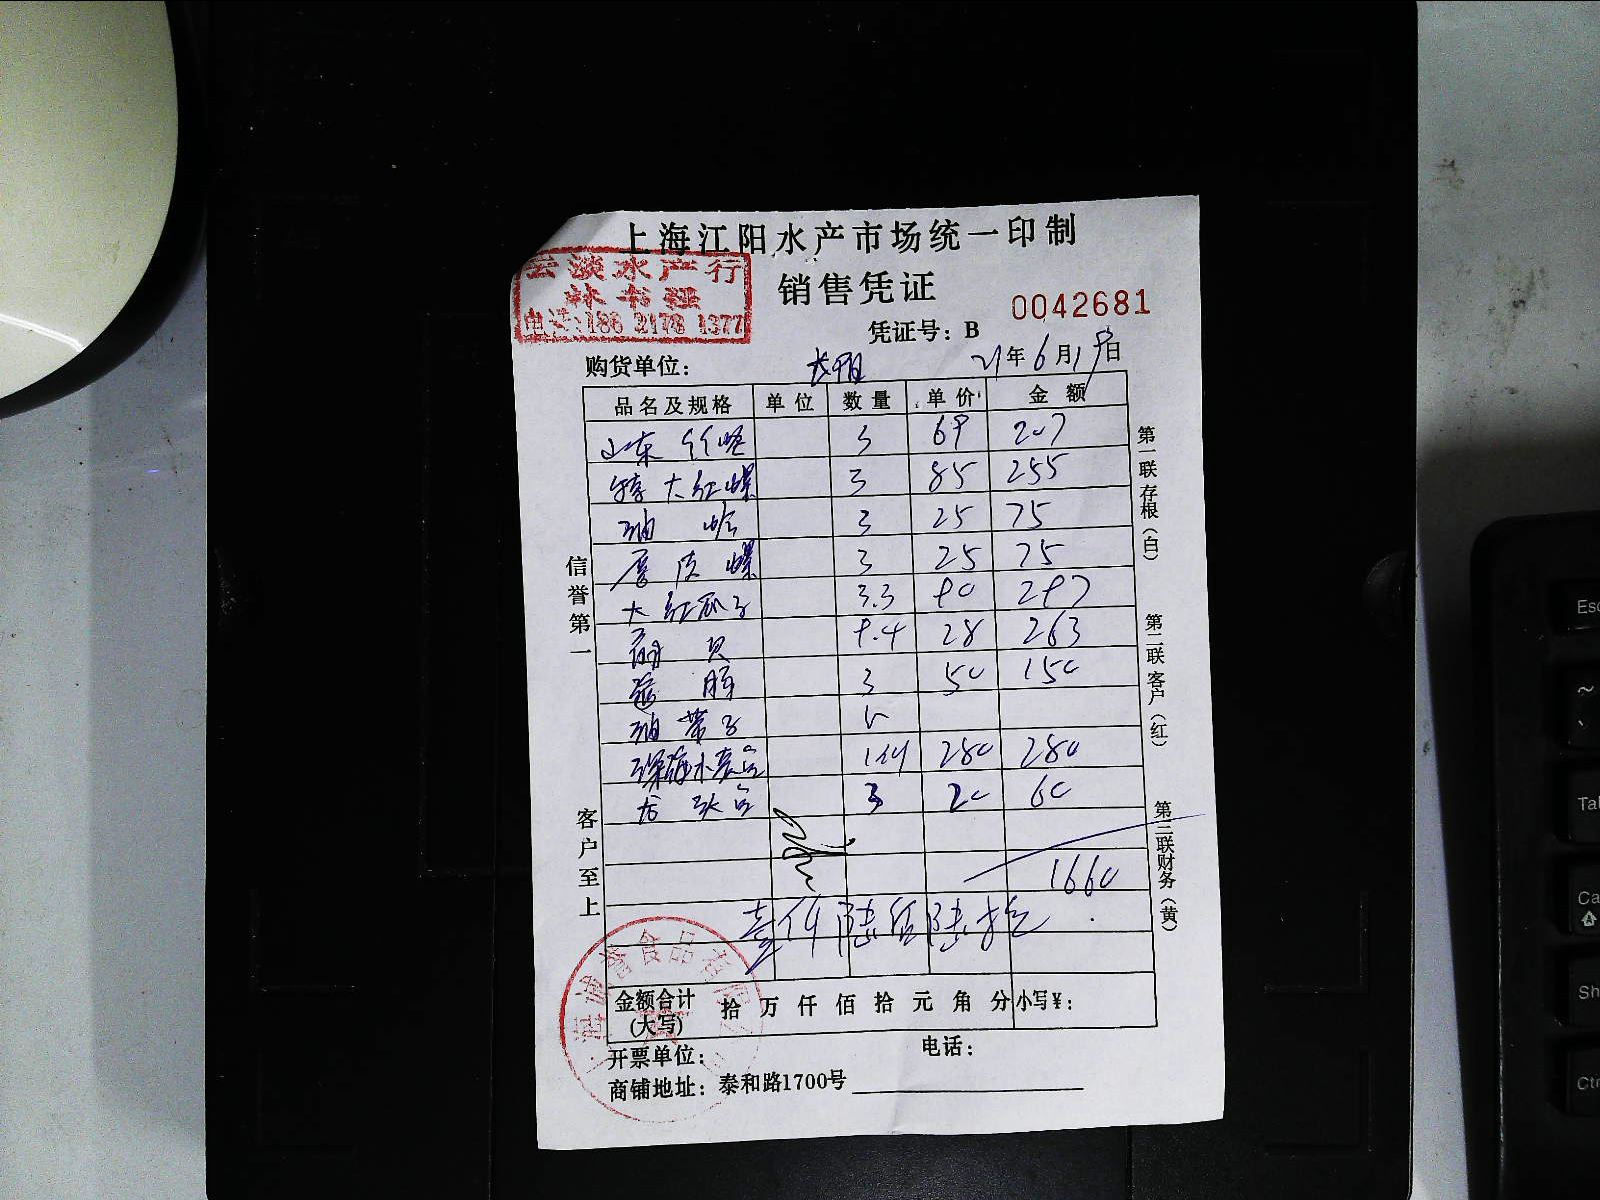 上海江阳水产市场统一印制
云淡水产行
林书强
电话:186 2178 1377
销售凭证
0042681
凭证号: B
购货单位:
21年6月19日
品名及规格 单位 数量 单价 金额
山东 3 69 207
特大红螺 3 85 255
油蛤 3 25 75
皮螺 3 25 75
大红瓜子 3.3 90 297
贝 9.4 28 263
3 50 150
油带子
280 280
3 20 60
1660
壹仟陆佰陆拾
金额合计(大写) 拾 万 仟 佰 拾 元 角 分 小写¥:
开票单位: 电话:
商铺地址: 泰和路1700号
信誉第一
客户至上
第一联存根(白)
第二联客户(红)
第三联财务(黄)
食品有限
Esc
~
Ta
Ca
Sh
Ct